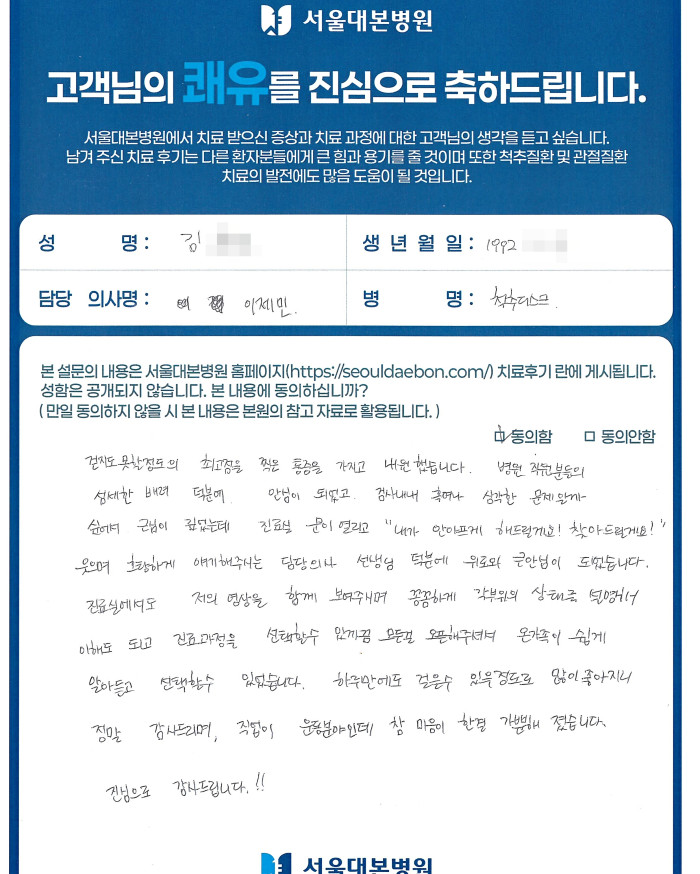 서울대본병원
고객님의 쾌유를 진심으로 축하드립니다.
서울대본병원에서 치료 받으신 증상과 치료 과정에 대한 고객님의 생각을 듣고 싶습니다.
남겨 주신 치료 후기는 다른 환자분들에게 큰 힘과 용기를 줄 것이며 또한 척추질환 및 관절질환
치료의 발전에도 많음 도움이 될 것입니다.
성 명 : 김
생 년 월 일 : 1992
담당 의사명 : 이제민.
병 명 : 척추디스크.
본 설문의 내용은 서울대본병원 홈페이지(https://seouldaebon.com/) 치료후기 란에 게시됩니다.
성함은 공개되지 않습니다. 본 내용에 동의하십니까?
( 만일 동의하지 않을 시 본 내용은 본원의 참고 자료로 활용됩니다. )
☑ 동의함 □ 동의안함
걷지도 못할정도의 최고점을 찍은 통증을 가지고 내원했습니다. 병원 직원분들의
섬세한 배려 덕분에 안심이 되었고. 검사내내 혹여나 심각한 문제일까
싶어서 근심이 깊었는데 진료실 문이 열리고 "내가 안아프게 해드릴게요! 찾아드릴게요!"
웃으며 호탕하게 얘기해주시는 담당의사 선생님 덕분에 위로와 큰안심이 되었습니다.
진료실에서도 저의 영상을 함께 보여주시며 꼼꼼하게 각부위의 상태를 설명해서
이해도 되고 진료과정을 선택할수 있게끔 모든걸 오픈해주셔서 온가족이 쉽게
알아듣고 선택할수 있었습니다. 하루만에도 걸을수 있을정도로 많이 좋아지니
정말 감사드리며, 직업이 운동분야인데 참 마음이 한결 가뿐해 졌습니다.
진심으로 감사드립니다.!!
서울대본병원